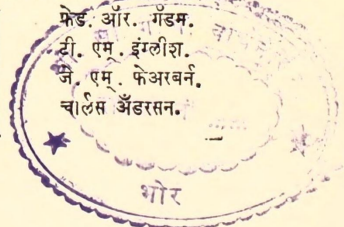 फ्रेड. ऑर. गॅडम.
टी. एम्. इंग्लीश.
जे. एम्. फेअरबर्न.
चार्लस अँडरसन.
भोर